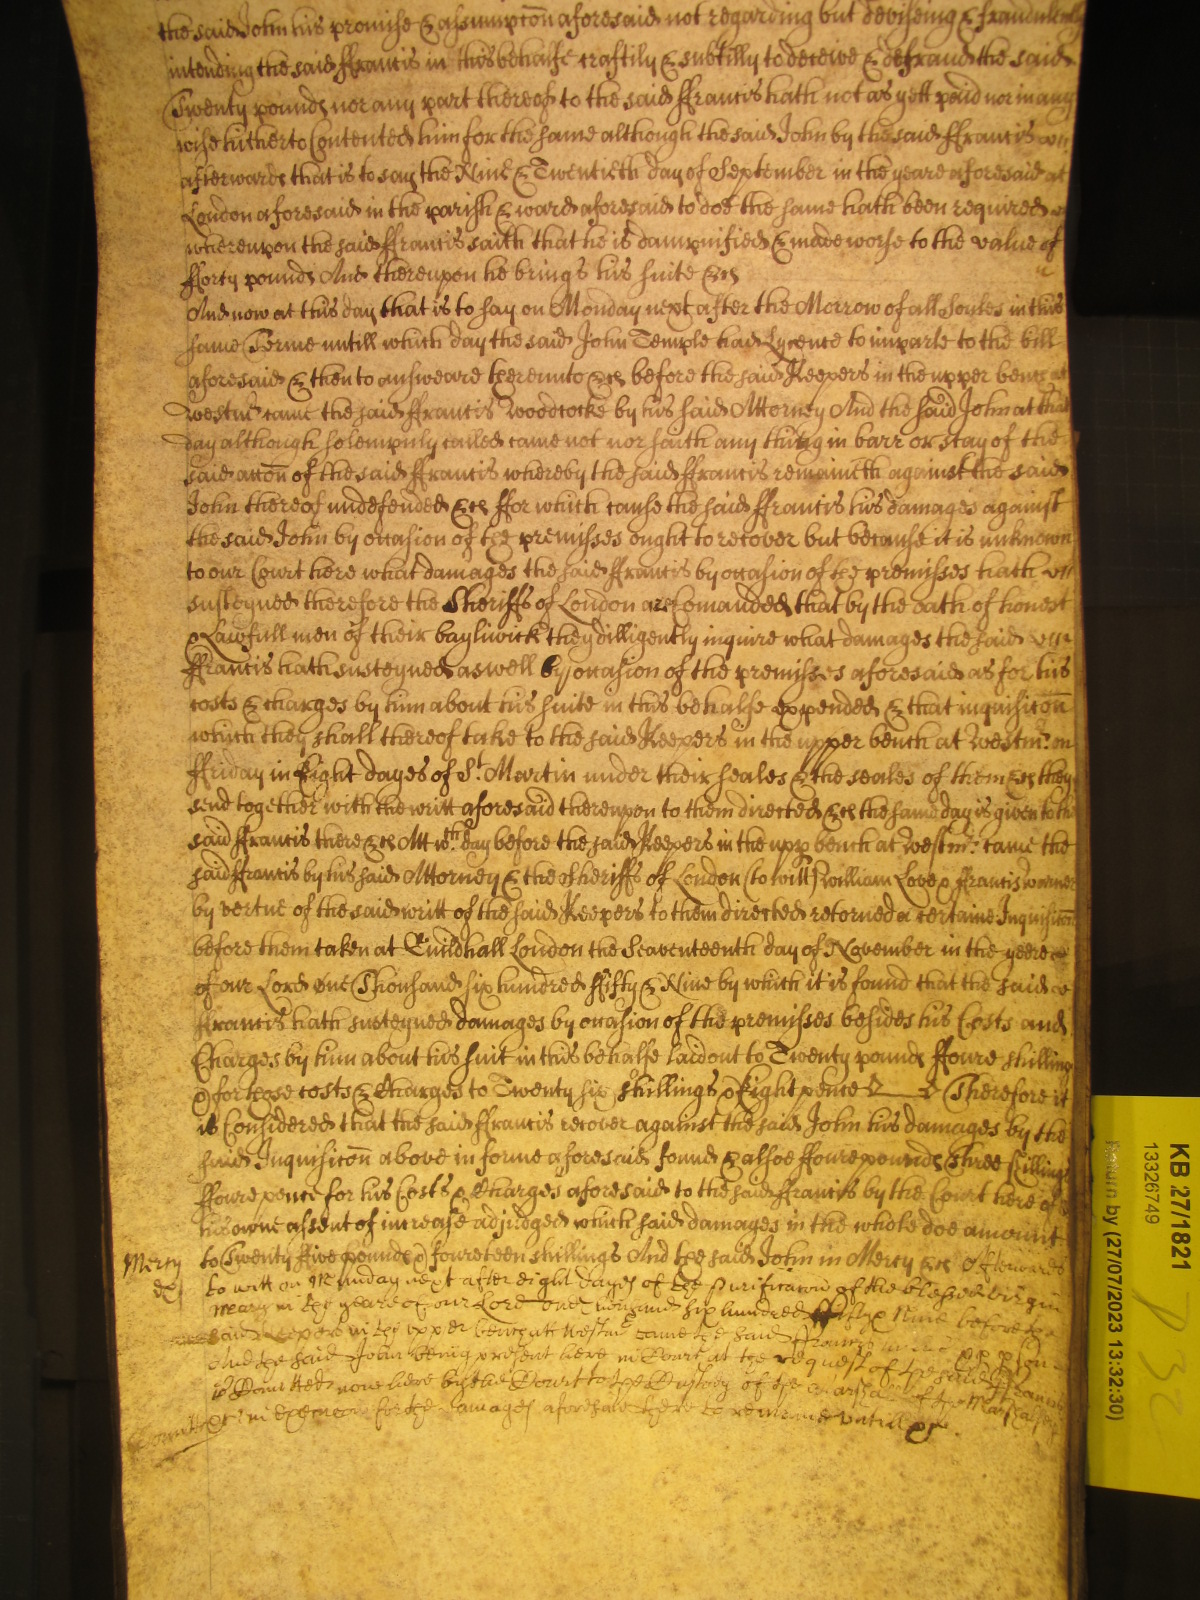 the said John his promise & assumpton aforesaid not regarding but deviseing & fraudulently
intending the said ffrancis in this behalfe craftily & subtilly to deceive & defraud the said
Twenty pounds nor any part thereof to the said ffrancis hath not as yett paid nor in any
wise hitherto Contented him for the same although the said John by the said ffrancis
afterwards that is to say the Nine & Twentieth day of September in the yeare aforesaid at
London aforesaid in the parish & ward aforesaid to doe the same hath been required
whereupon the said ffrancis saith that he is dampnified & made worse to the value of
fforty pounds And thereupon he brings his suite &c
And now at this day that is to say on Monday next after the Morrow of all Soules in this
same Terme untill which day the said John Temple had Lycence to imparle to the bill
aforesaid & then to answeare thereunto &c before the said Keepers in the upper bench at
Westmr came the said ffrancis Woodcocke by his said Attorney And the said John at that
day although solempnly called came not nor saith any thing in barr or stay of the
said accon of the said ffrancis whereby the said ffrancis remaineth against the said
John thereof undefended &c ffor which cause the said ffrancis his damages against
the said John by occasion of the premisses ought to recover but because it is unknown
to our Court here what damages the said ffrancis by occasion of the premisses hath
susteyned therefore the Sheriffs of London are Comanded that by the oath of honest
& Lawfull men of their bayliwick they dilligently inquire what damages the said
ffrancis hath susteyned aswell by occasion of the premisses aforesaid as for his
costs & charges by him about his suite in this behalfe expended & that inquisicon
which they shall thereof take to the said Keepers in the upper bench at Westmr on
ffriday in Eight dayes of St Martin under their seales & the seales of them &c they
send together with the writt aforesaid thereupon to them directed &c the same day is given to the
said ffrancis there &c Att wch day before the said Keepers in the upp bench at Westmr came the
said ffrancis by his said Attorney & the Sheriffs of London (to witt) William Love & ffrancis Warner
by vertue of the said writt of the said Keepers to them directed retorned a certaine Inquisicon
before them taken at Guildhall London the Seaventeenth day of November in the yeere
of our Lord One Thousand six hundred ffifty & Nine by which it is found that the said
ffrancis hath susteyned damages by occasion of the premisses besides his Costs and
Charges by him about his suit in this behalfe laid out to Twenty pounds ffoure shillings
& for those costs & Charges to Twenty six shillings & Eight pence Therefore it
is Considered that the said ffrancis recover against the said John his damages by the
said Inquisicon above in forme aforesaid found & alsoe ffoure pounds Three shillings
ffoure pence for his Costs & Charges aforesaid to the said ffrancis by the Court here of
his owne assent of increase adjudged which said damages in the whole doe amount
Mercy to Twenty ffive pounds & foureteen shillings And the said John in Mercy &c Afterwards
to witt on Munday next after eight dayes of the Purificacon of the blessed virgin
Mary in the yeare of our Lord One thousand six hundred ffifty & Nine before the
said Keepers in the upper bench att Westmr came the said ffrancis in his pp pson
And the said John being present here in Court at the request of the said ffrancis
is Comitted now here by the Court to the Custody of the Marshall of the Marshalsey
Comittr in execucon for the damages aforesaid there to remaine untill &c
KB 27/1821
13326749
Return by (27/07/2023 13:32:30)